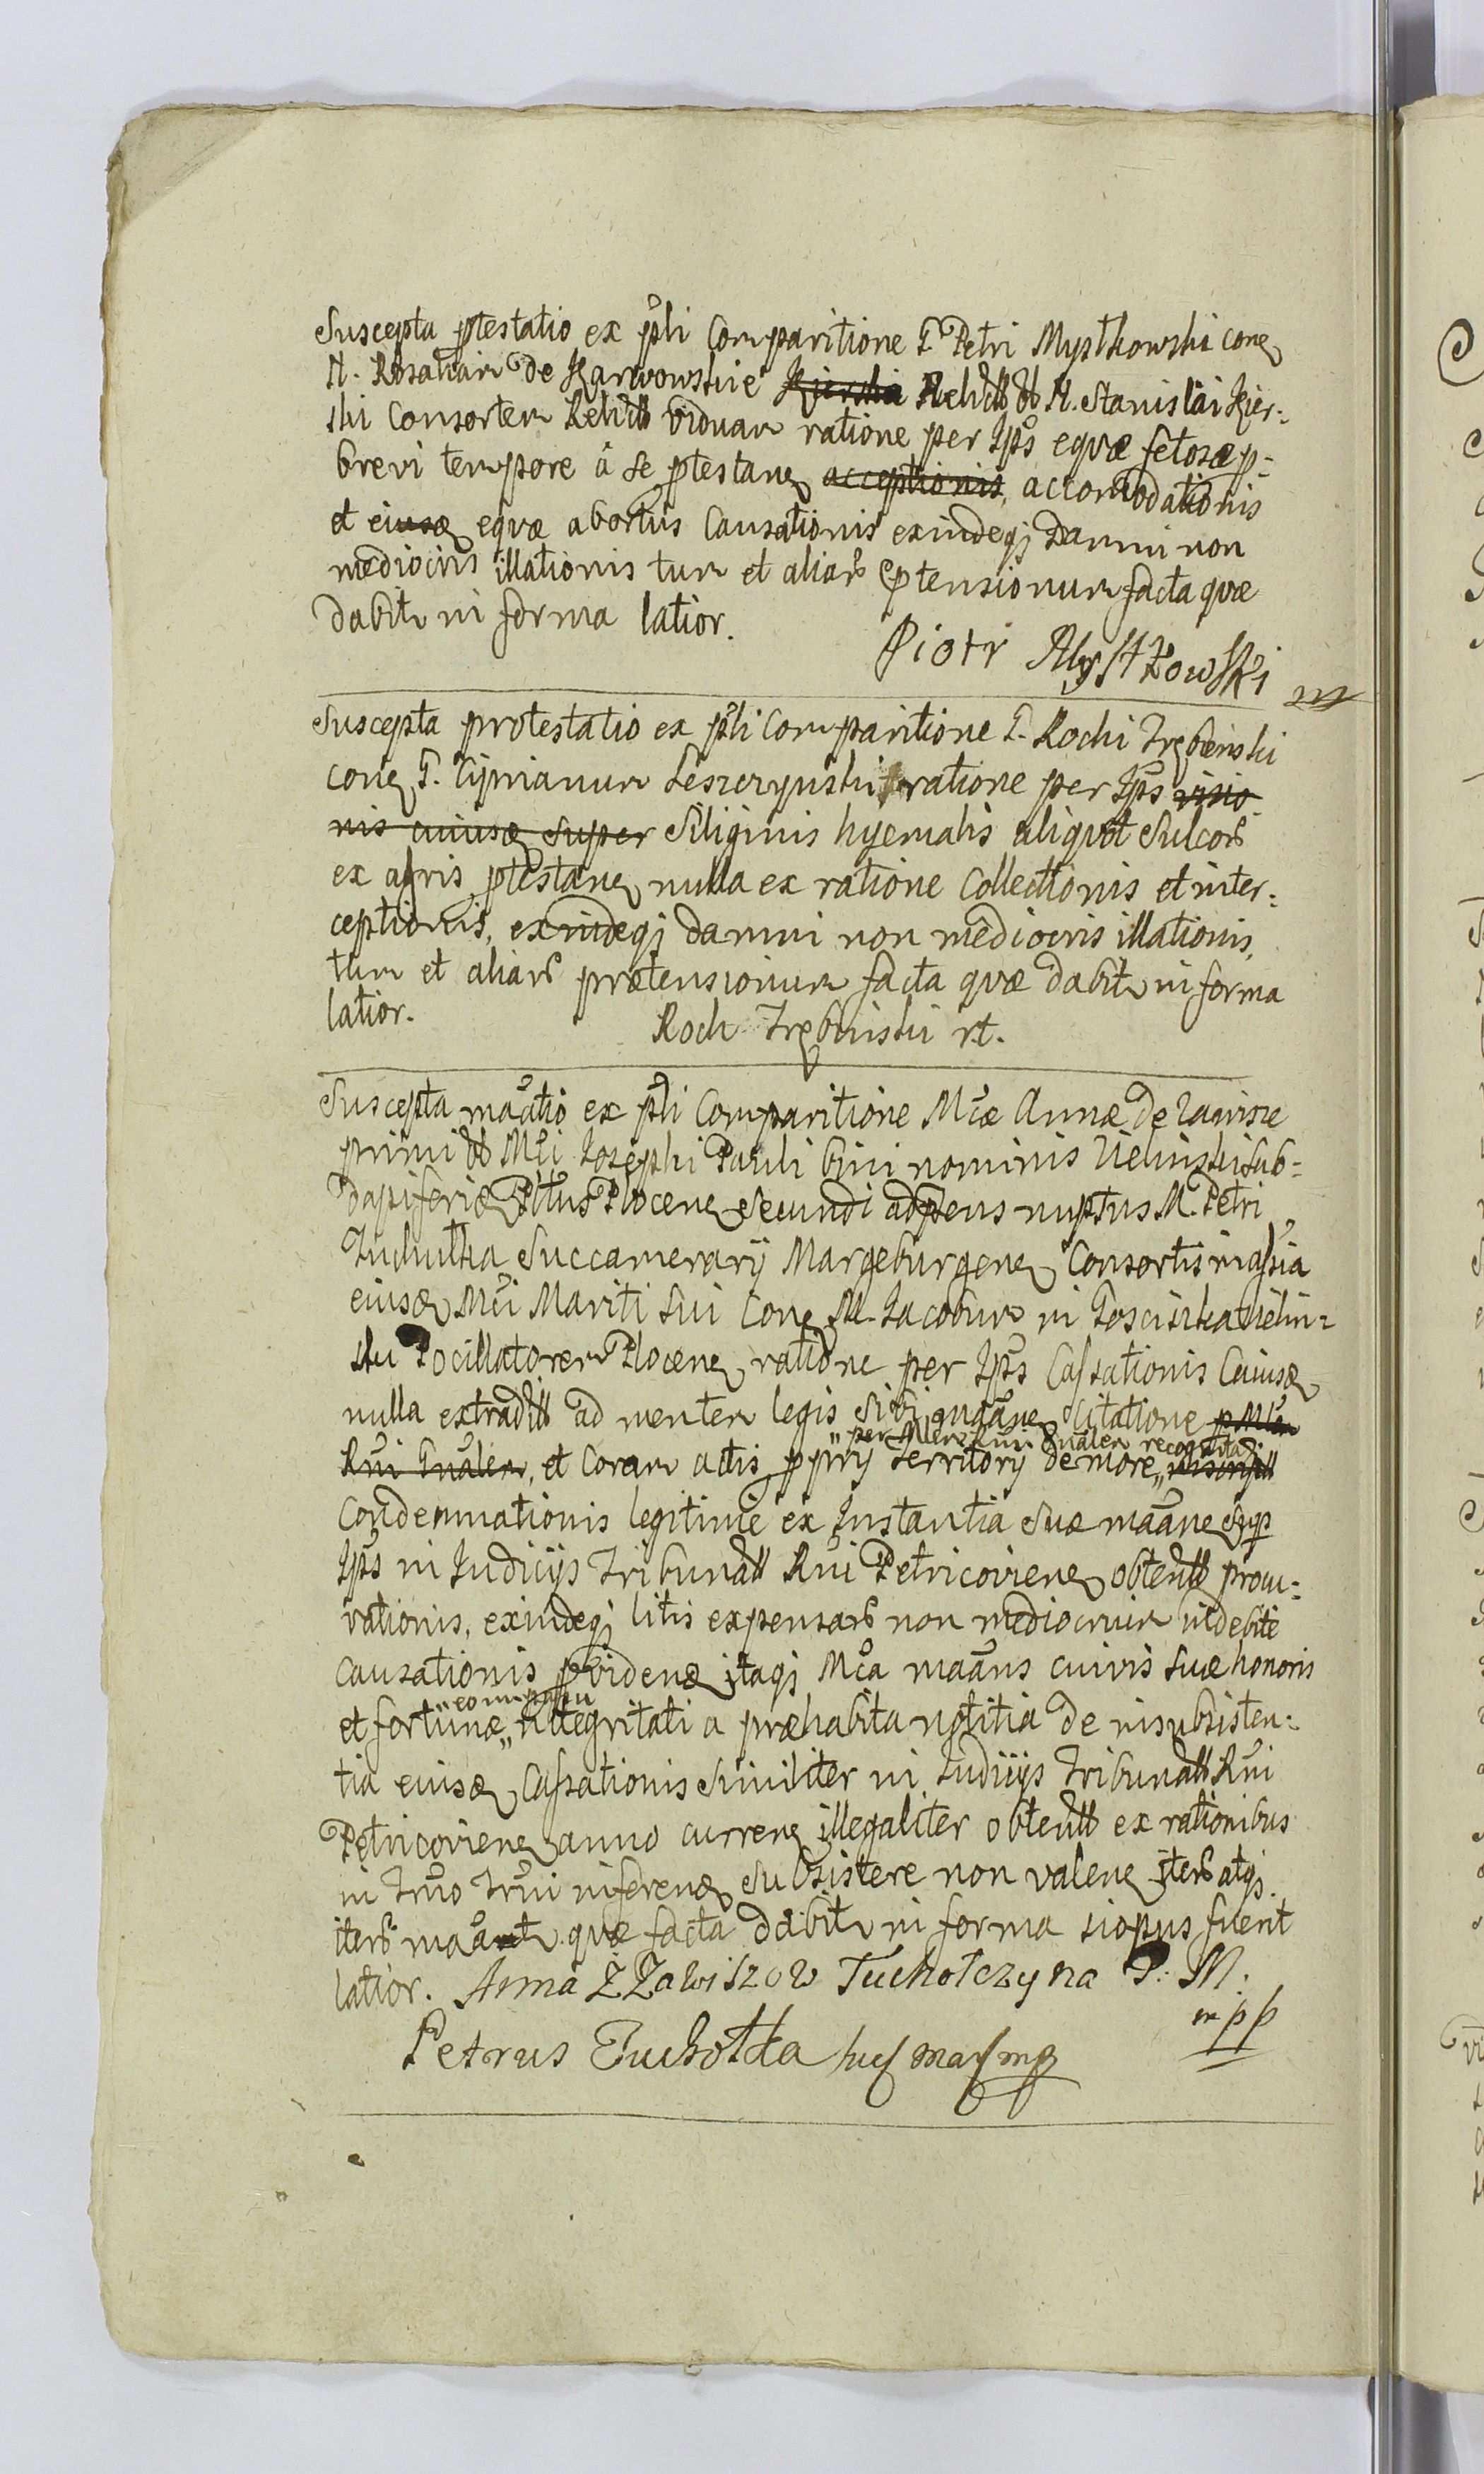 Suscepta ptestatio ex pñli Comparitione G Petri Mystkowski cone
N. Rosaliam de Karwowskie Kierska Relict N. Stanislai Kier=
ski Consortem Relict viduam ratione per Ips̃ equæ fetosæ p=
brevi tempore â se ptestane acceptionis, accomodationis
et eiusd equæ abortus Causationis exindeq; Damni non
mediocris illationis tum et aliar ptensionum facta quæ
dabit in forma latior.
Piotr Mystkowski
Suscepta protestatio ex pñli Comparitione G. Rochi Trębinski
cone G. Ciprianum Leszczynski ratione per Ips̃ visio
nis cuiusd super Siliginis hyemalis aliquot Sulcor
ex agris ptestane nulla ex ratione Collectionis et inter=
ceptionis, exindeq; damni non mediocris illationis,
tum et aliar prætensionum facta quæ dabit in forma
latior.
Roch Trębinski
Suscepta mãtio ex pñli Comparitione Mcæ Annæ de Zawisze
primi Mci Josephi Pauli bini nominis Zielinski Sub=
dapiferi Plocene secundi ad pñs nuptus M. Petri
Tuchulka Succamerarij Margeburgene Consortis in assia
eiusd Mci Mariti sui Cone M. Jacobum in Goscisika Zielin=
ski Pocillatorem Plocene ratione per Ips̃ Cassationis Cuiusd
nulla extradit ad mentem legis sibi mãne Citatione p Mlem
per Mlem Rñi Gñalem recognita
Rñi Gñalem, et Coram actis pprij Territorij de more
Condemnationis legitime ex Instantia suæ mãne sup
Ips̃ in Judicijs Tribunal Rñi Petricoviene obtent procu=
rationis, exindeq; litis expensar non mediocrium indebite
causationis pvidene itaq; Mca mãns cuivis suæ honoris
et fortunæ integritati a præhabita notitia de insubsisten=
tia eiusd Cassationis Similiter in Judicijs Tribunal Rñi
Petricoviene anno currene illegaliter obtent ex rationibus
in Trno Trni inferend Subsistere non valene iter atq;
iter mãat quæ facta dabit in forma si opus fuerit
latior. Anna Z Zawiszow Tuchołczyna P: M.
mpp
Petrus Tuchołka